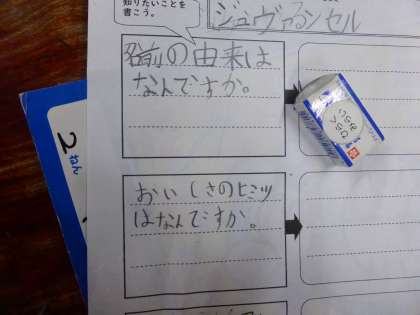 知りたいことを
書こう。
ジュヴァランセル
名前の由来は
なんですか。
おいしさのヒミツ
はなんですか。
2
ねん